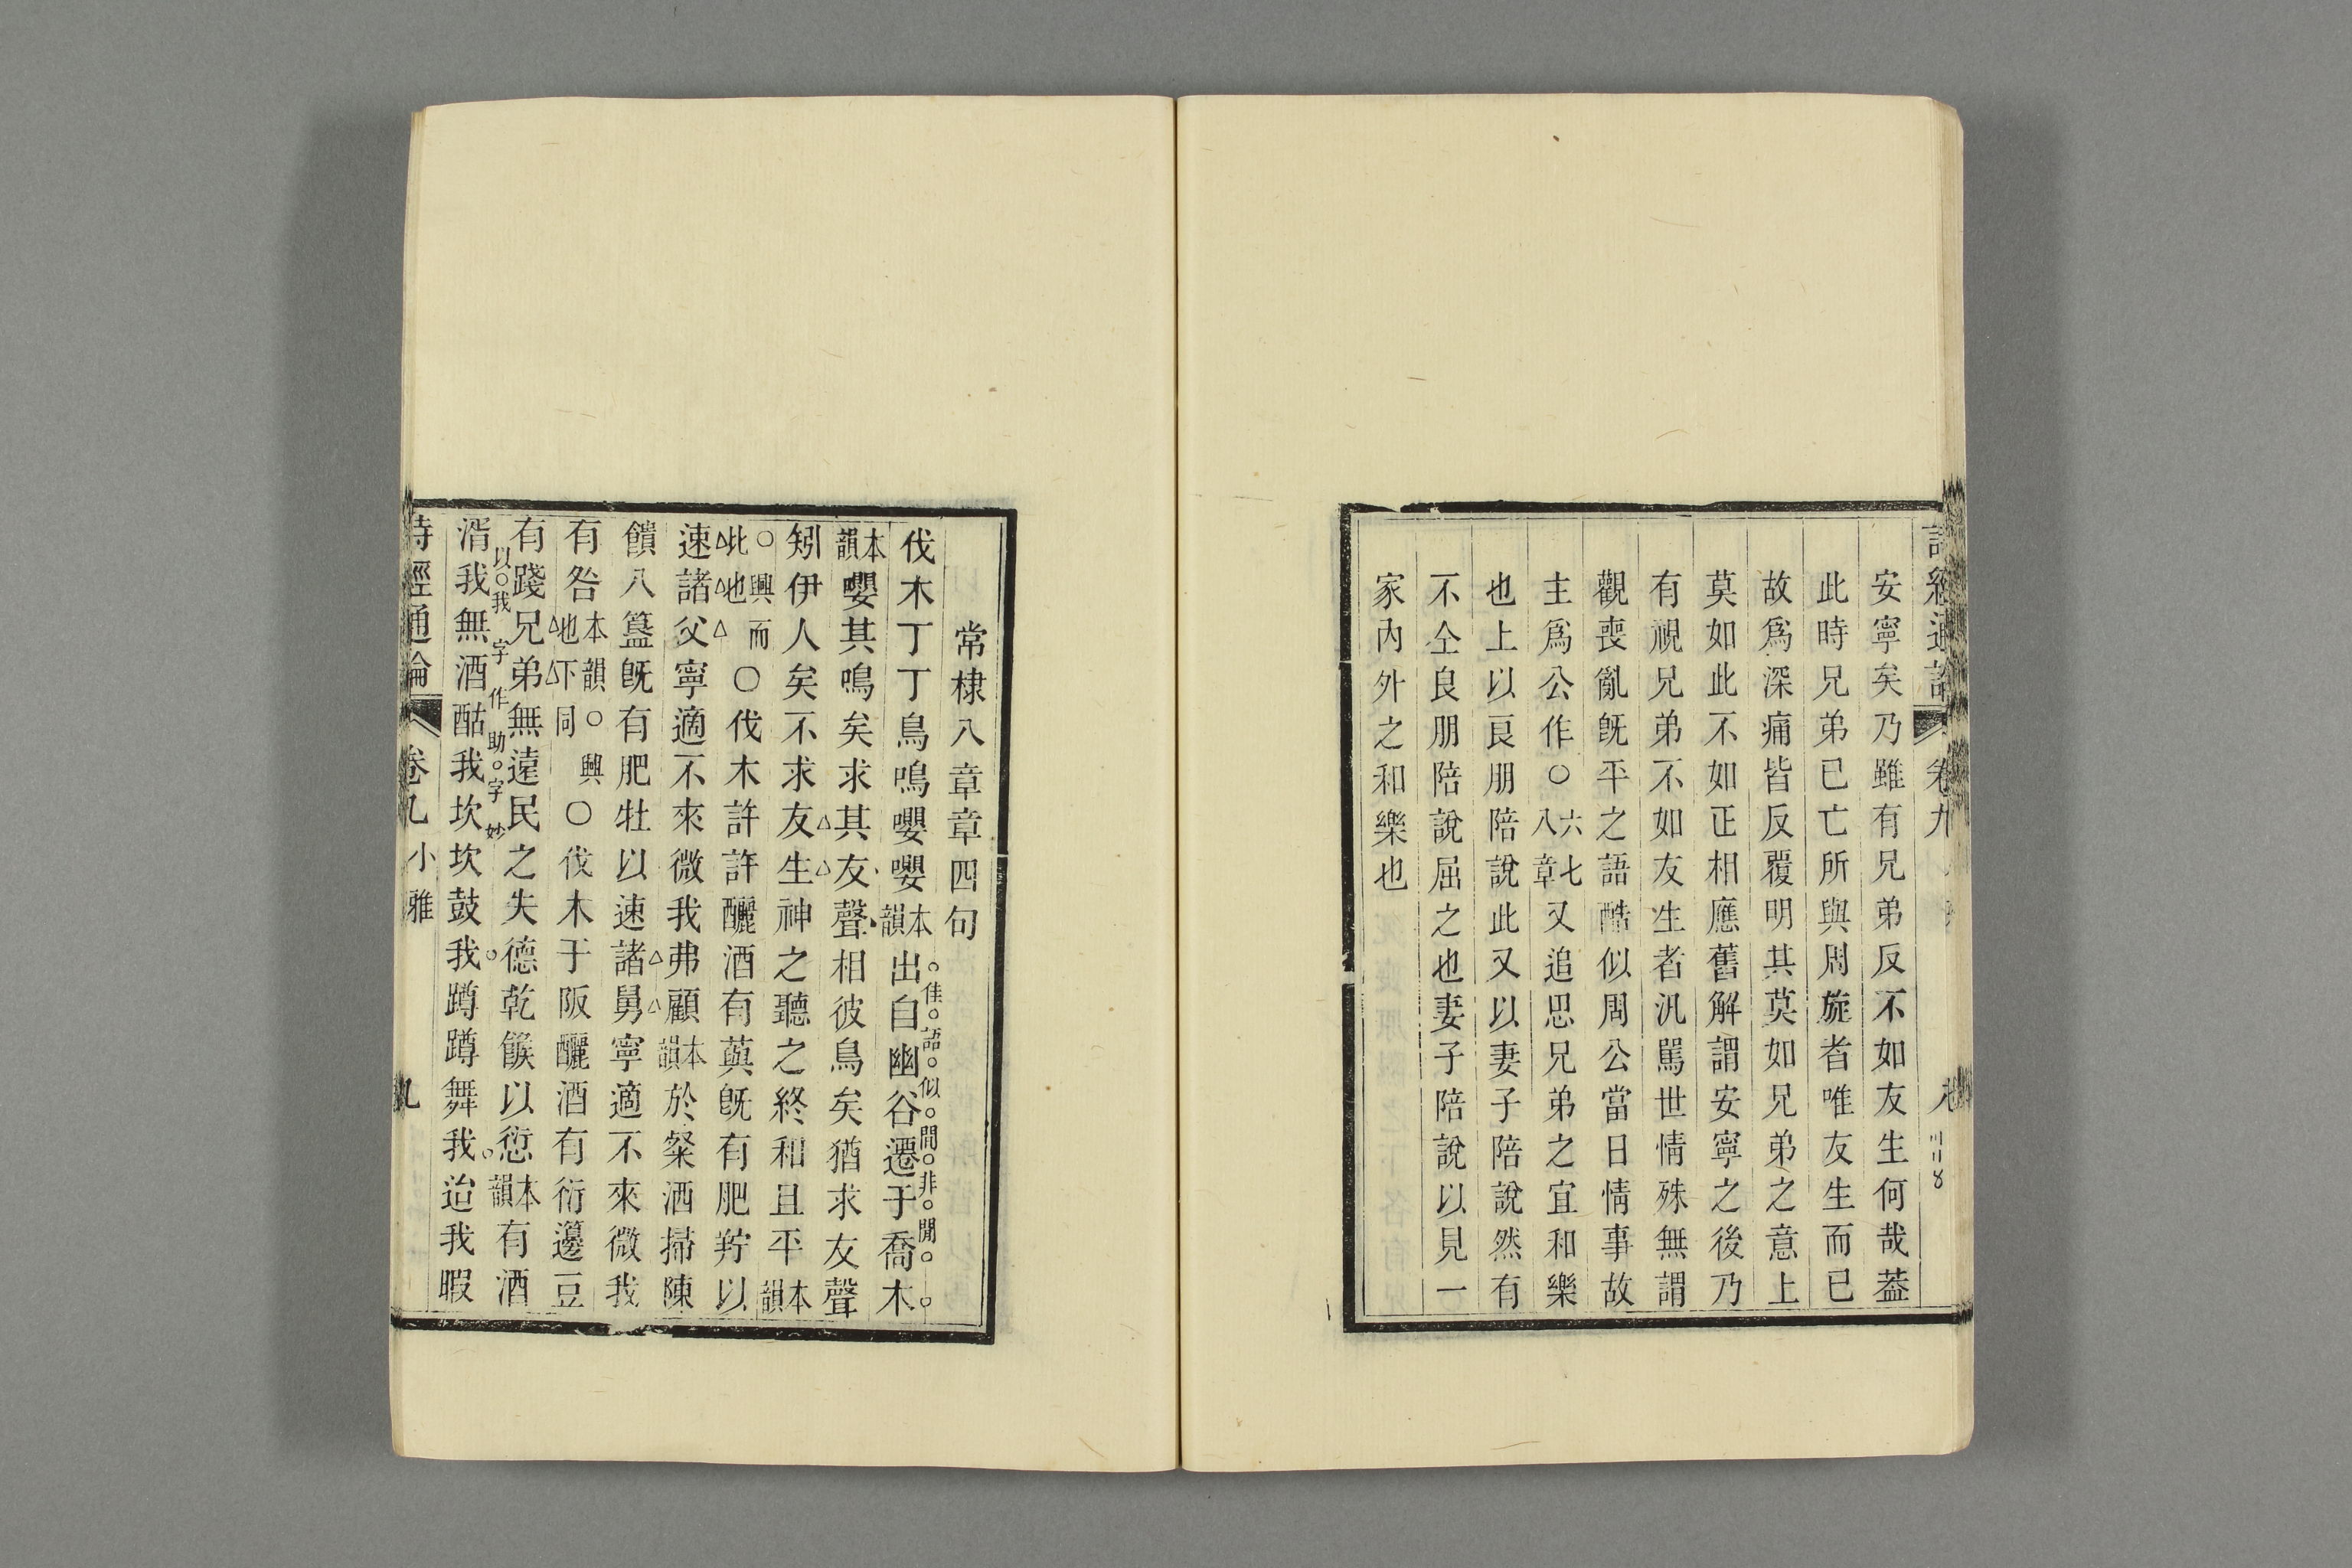 安寧矣乃雖有兄弟反不如友生何哉葢
此時兄弟已亡所與周旋者唯友生而已
故爲深痛皆反覆明其莫如兄弟之意上
莫如此不如正相應舊解謂安寧之後乃
有視兄弟不如友生者汎駡世情殊無謂
觀喪亂旣平之語酷似周公當日情事故
主爲公作○六七八章又追思兄弟之宜和樂
也上以良朋陪說此又以妻子陪說然有
不仝良朋陪說屈之也妻子陪說以見一
家內外之和樂也
常棣八章章四句
伐木丁丁鳥鳴嚶嚶本韻出自幽谷遷于喬木
佳語似閒非閒
本韻嚶其鳴矣求其友聲相彼鳥矣猶求友聲
矧伊人矣不求友生神之聽之終和且平本韻
○興而此也○伐木許許釃酒有藇旣有肥羜以
速諸父寧適不來微我弗顧本韻於粲洒掃陳
饋八簋旣有肥牡以速諸舅寧適不來微我
有咎本韻○興也下同○伐木于阪釃酒有衍籩豆
有踐兄弟無遠民之失德乾餱以愆本韻有酒
以我字作助字妙
湑我無酒酤我坎坎鼓我蹲蹲舞我迨我暇
詩經通論 卷九 小雅 九